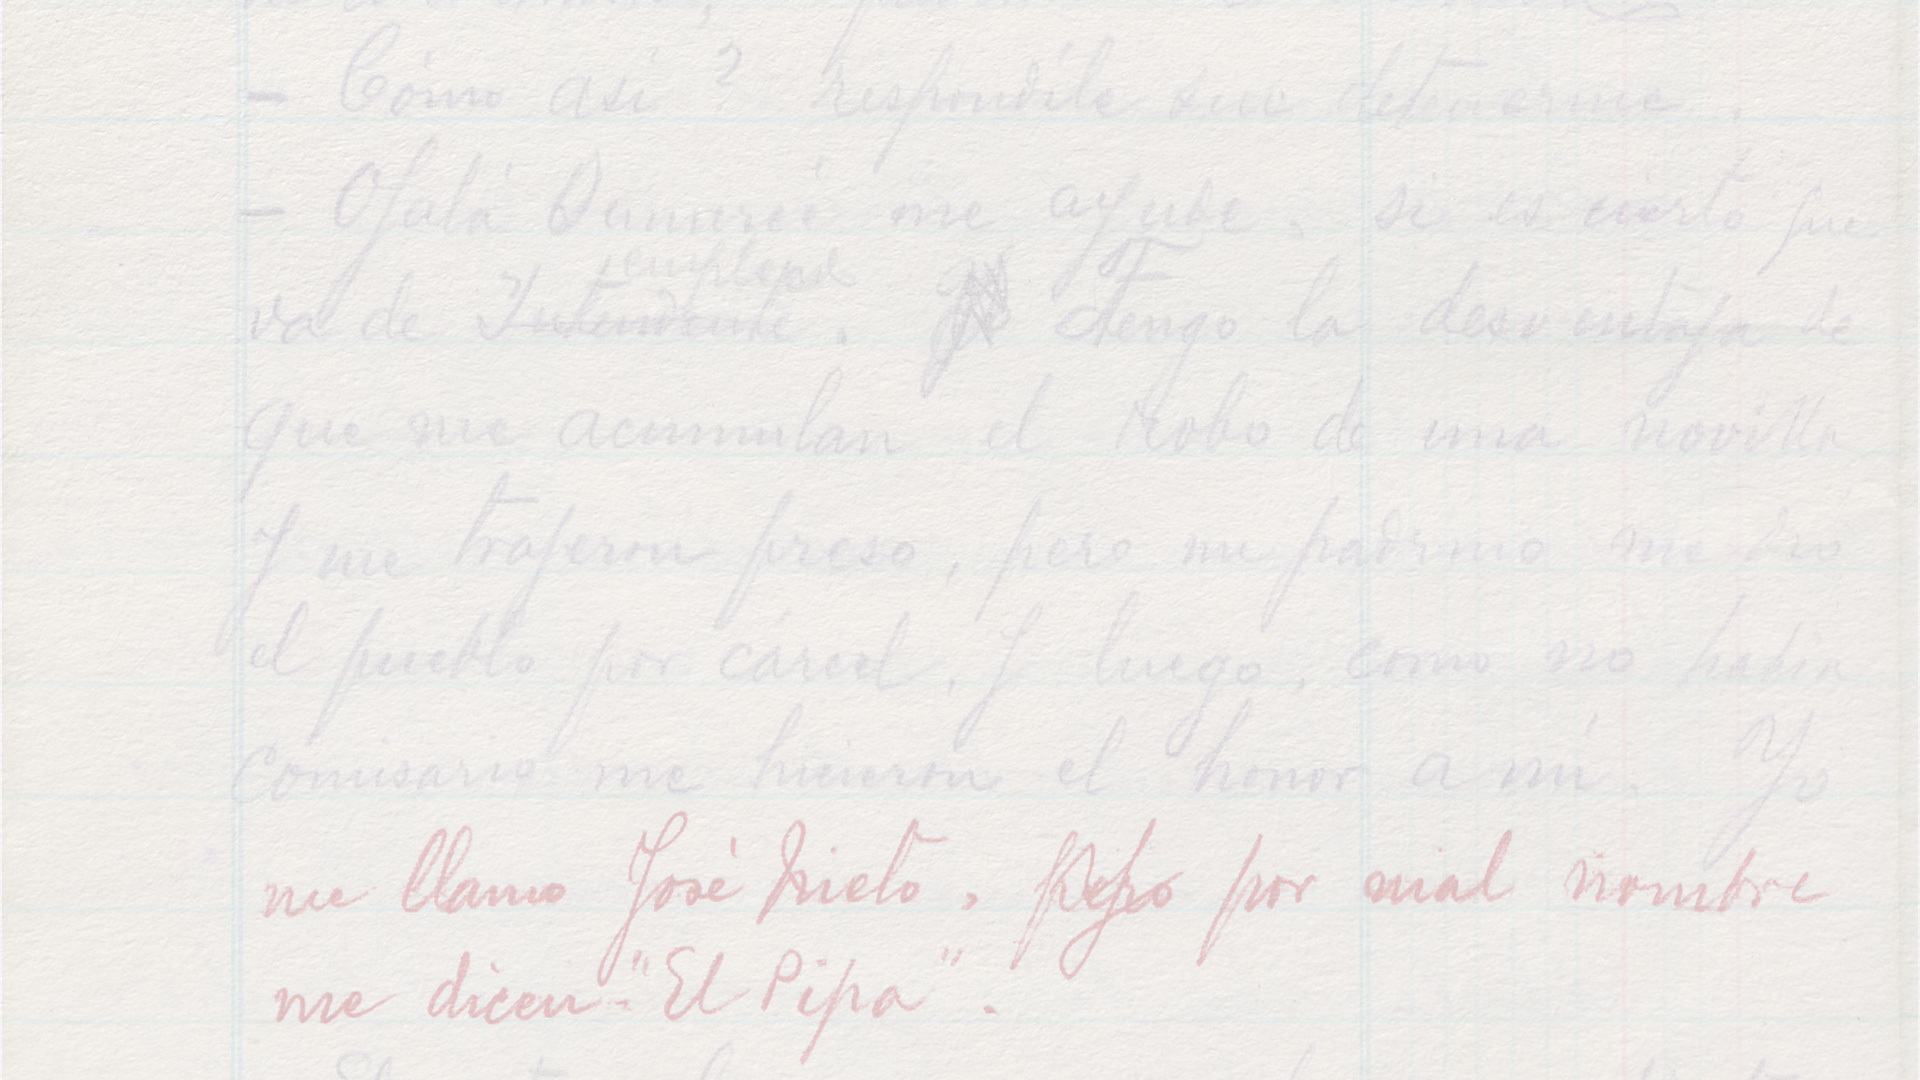 - Cómo así? respondíle sin detenerme.
- Ojalá Dumareé me ayude, si es cierto que
empleao
va de Intendente. Tengo la desventaja de
que me acumulan el robo de una novilla
y me trajeron preso, pero mi padrino me dio
el pueblo por cárcel, y luego, como no había
Comisario me hicieron el honor a mí. Yo
me llamo José Nieto, pero por mal nombre
me dicen "El Pipa".